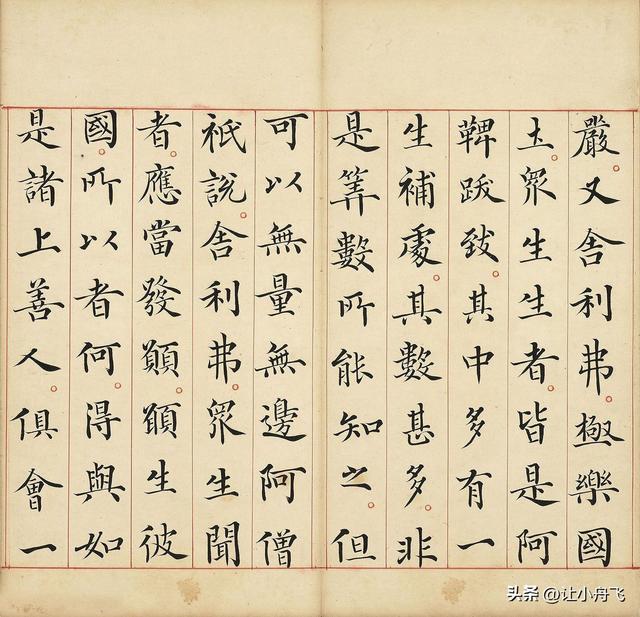 嚴又舍利弗極樂國
土眾生生者皆是阿
鞞跋致其中多有一
生補處其數甚多非
是筭數所能知之但
可以無量無邊阿僧
祇說舍利弗眾生聞
者應當發願願生彼
國所以者何得與如
是諸上善人俱會一
头条 @让小舟飞